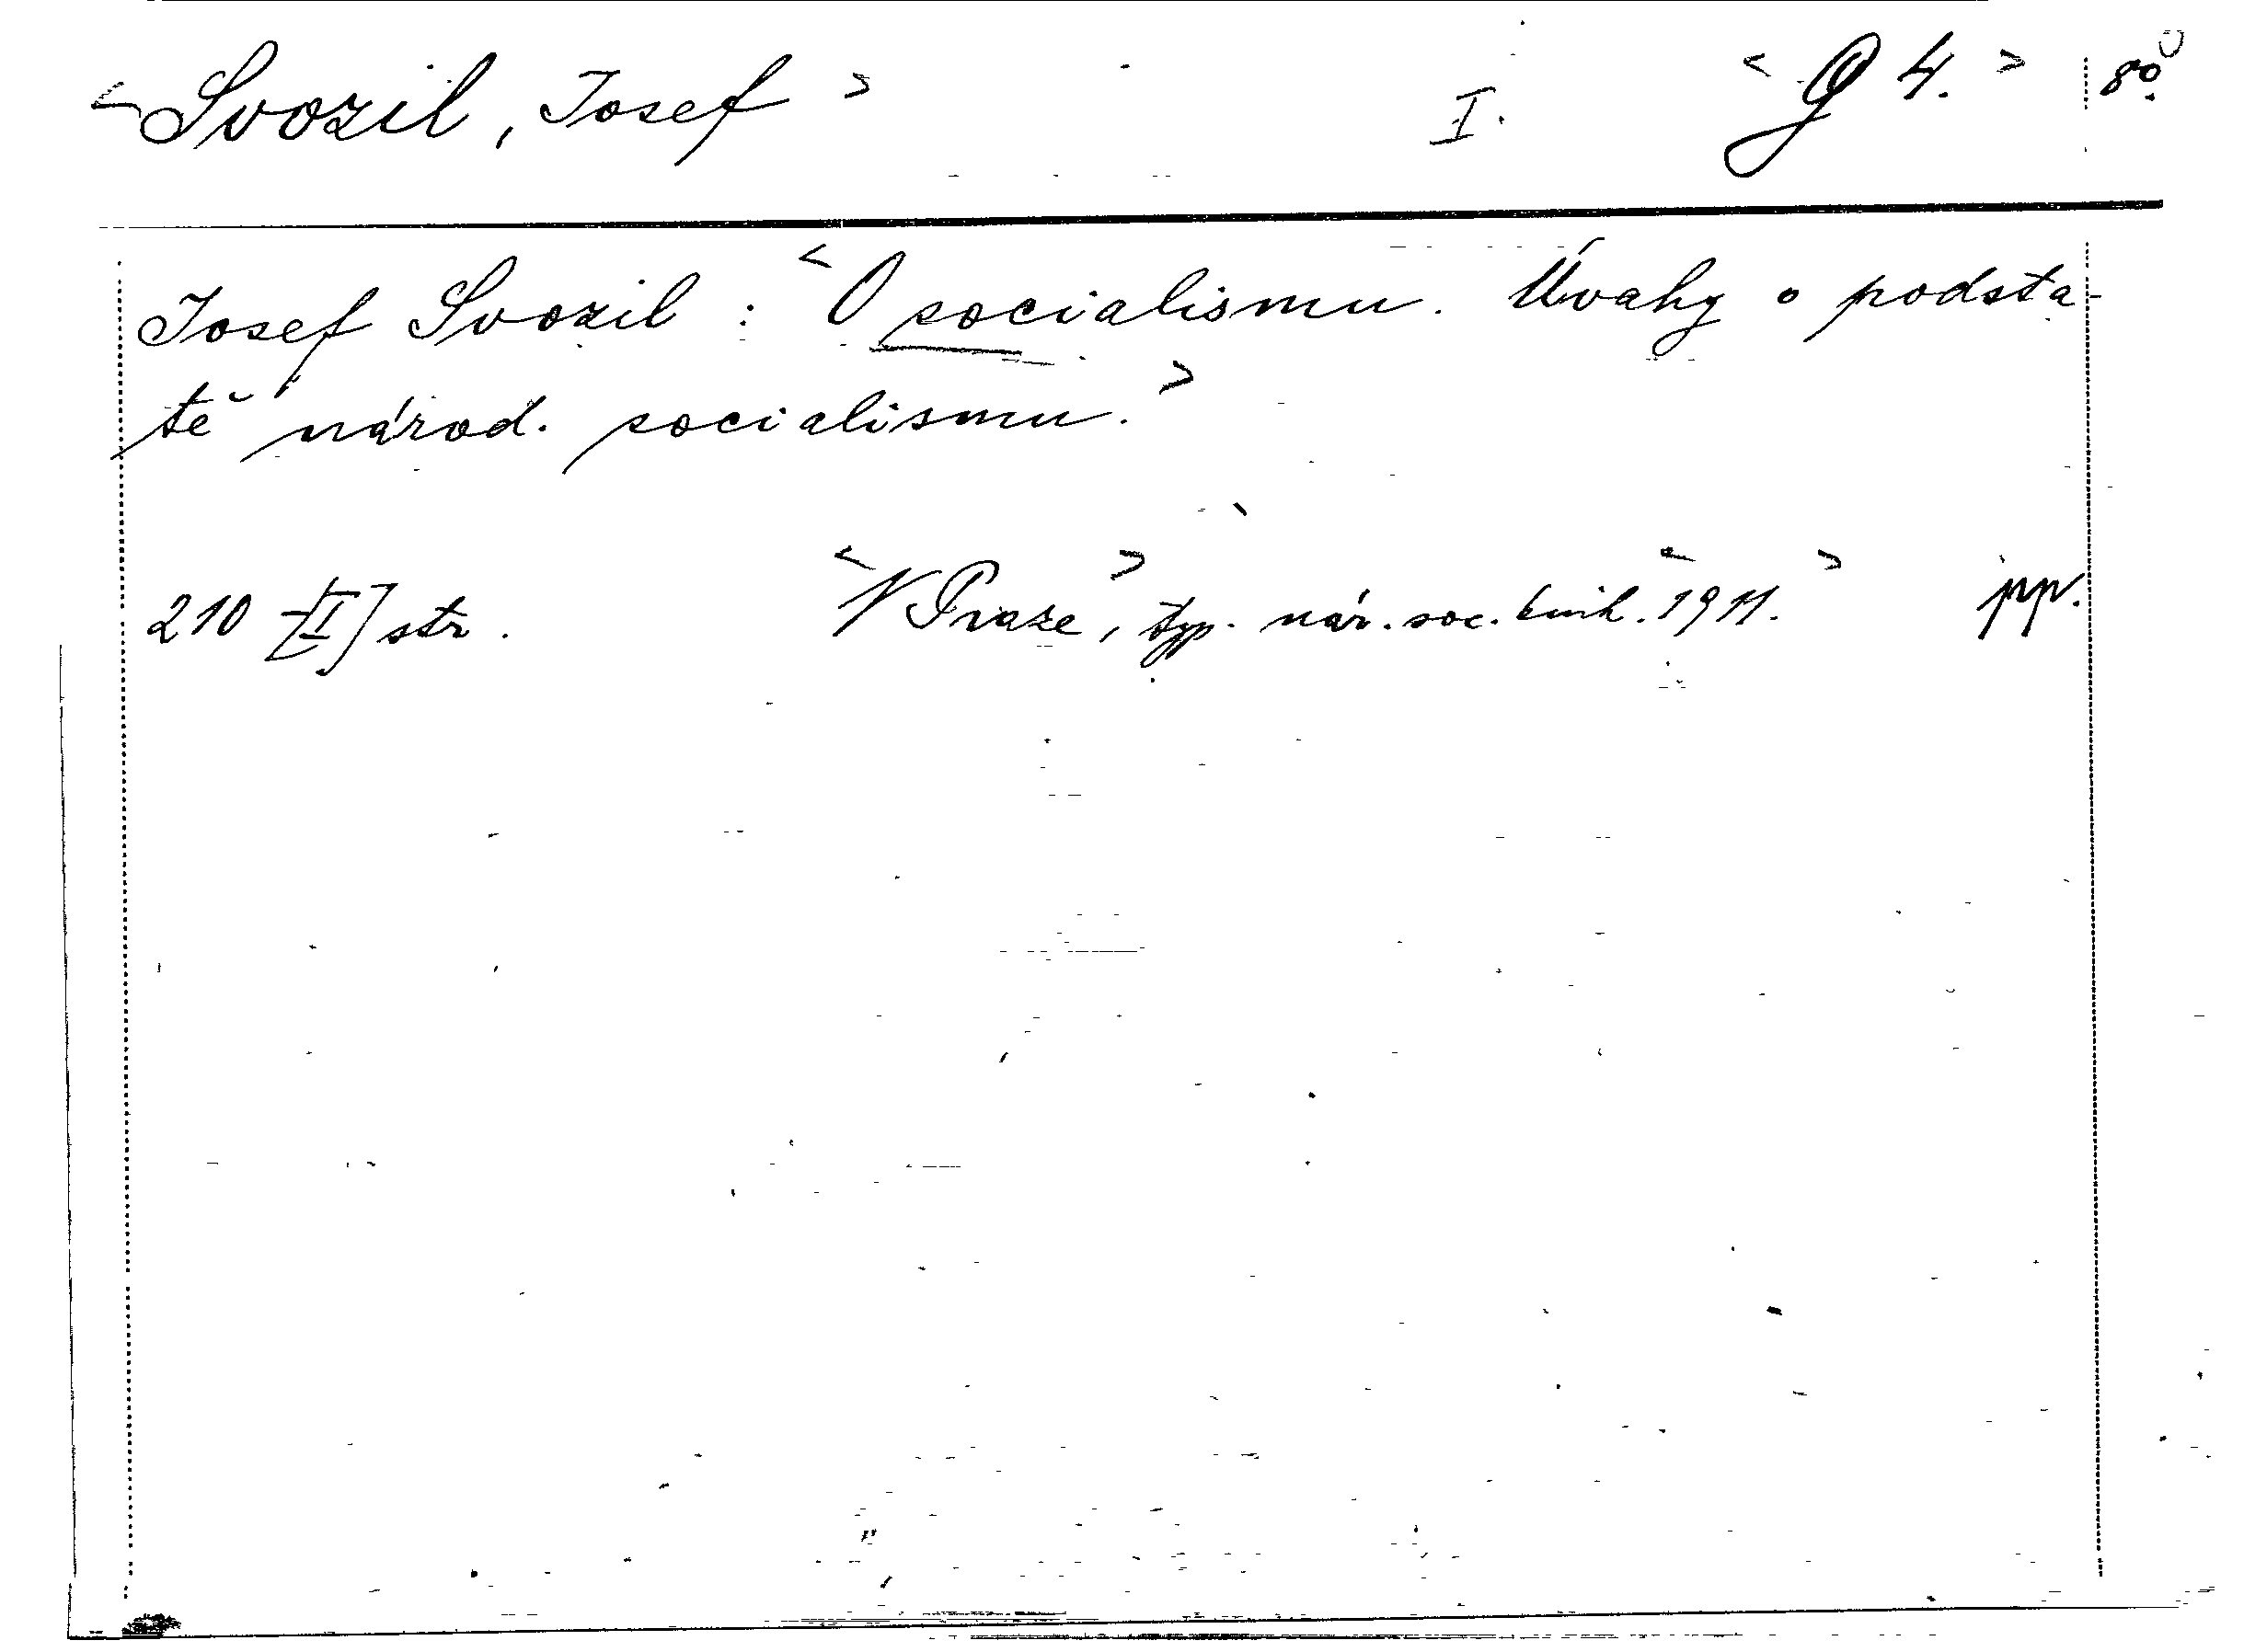 <Svozil, Josef> I. <G 4.> 8°.
Josef Svozil : <O socialismu. Úvahy o podsta-
tě národ. socialismu.>
210 [I] str. <V Praze>, typ. nár. soc. knih. <1911.>